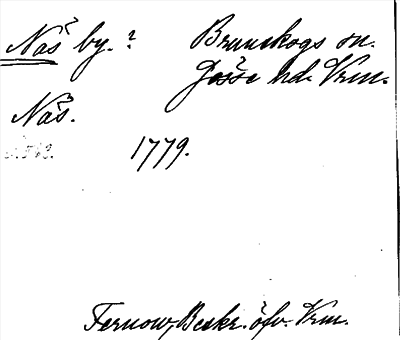 Näs by.? Brunskogs sn.
Jösse hd. Vrm.
Näs.
1779.
Fernow, Beskr. öfv. Vrm.